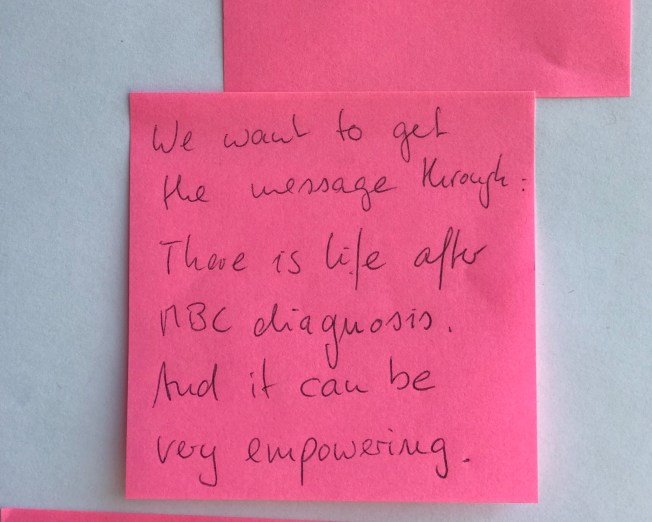 We want to get
the message through:
There is life after
MBC diagnosis.
And it can be
very empowering.